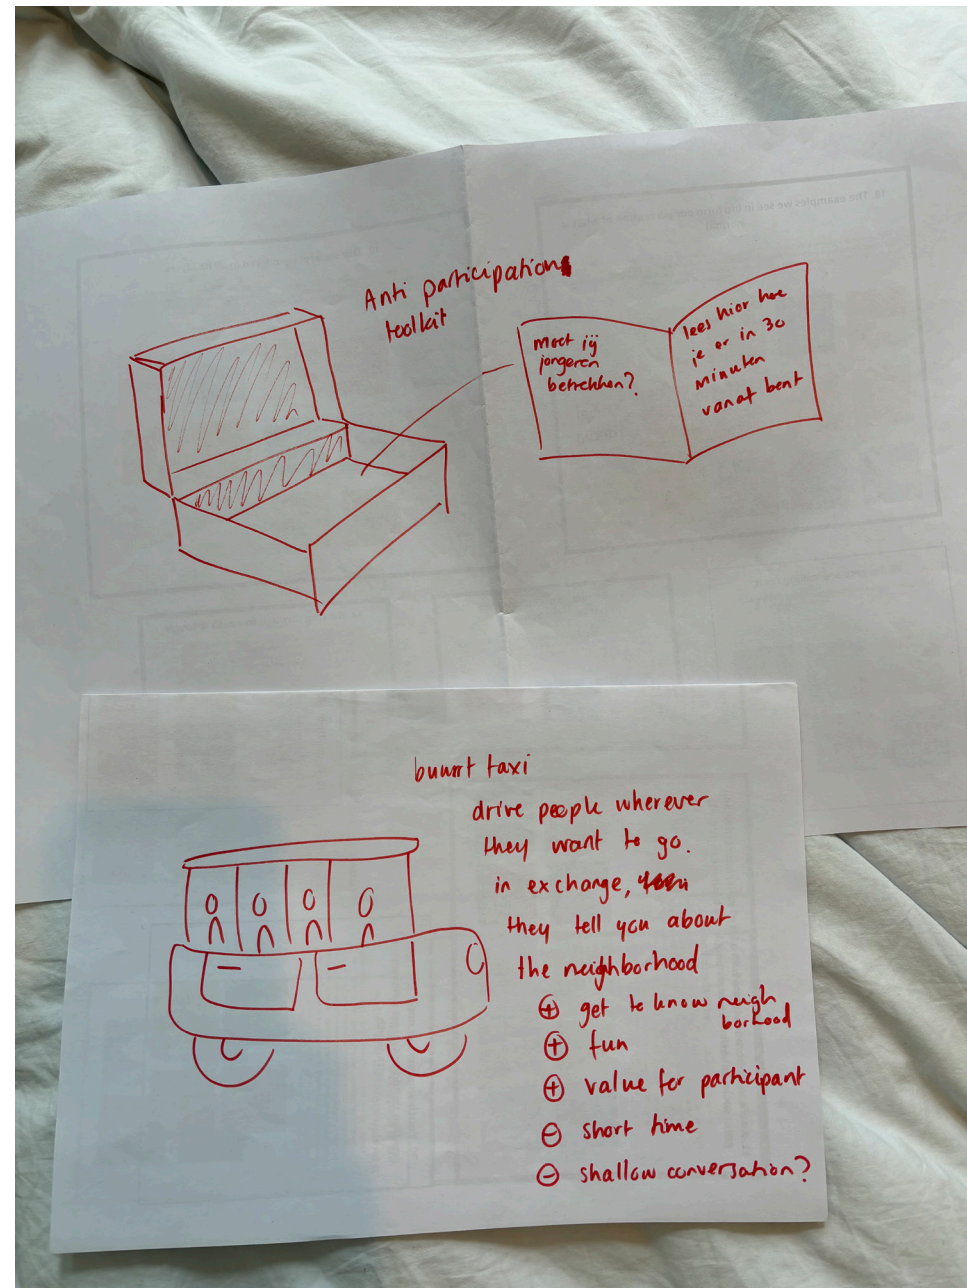 Anti participation
toolkit
moet jij
jongeren
betrekken?
lees hier hoe
je er in 30
minuten
vanaf bent
buurt taxi
drive people wherever
they want to go.
in exchange,
they tell you about
the neighborhood
⊕ get to know neigh
borhood
⊕ fun
⊕ value for participant
⊖ short time
⊖ shallow conversation?